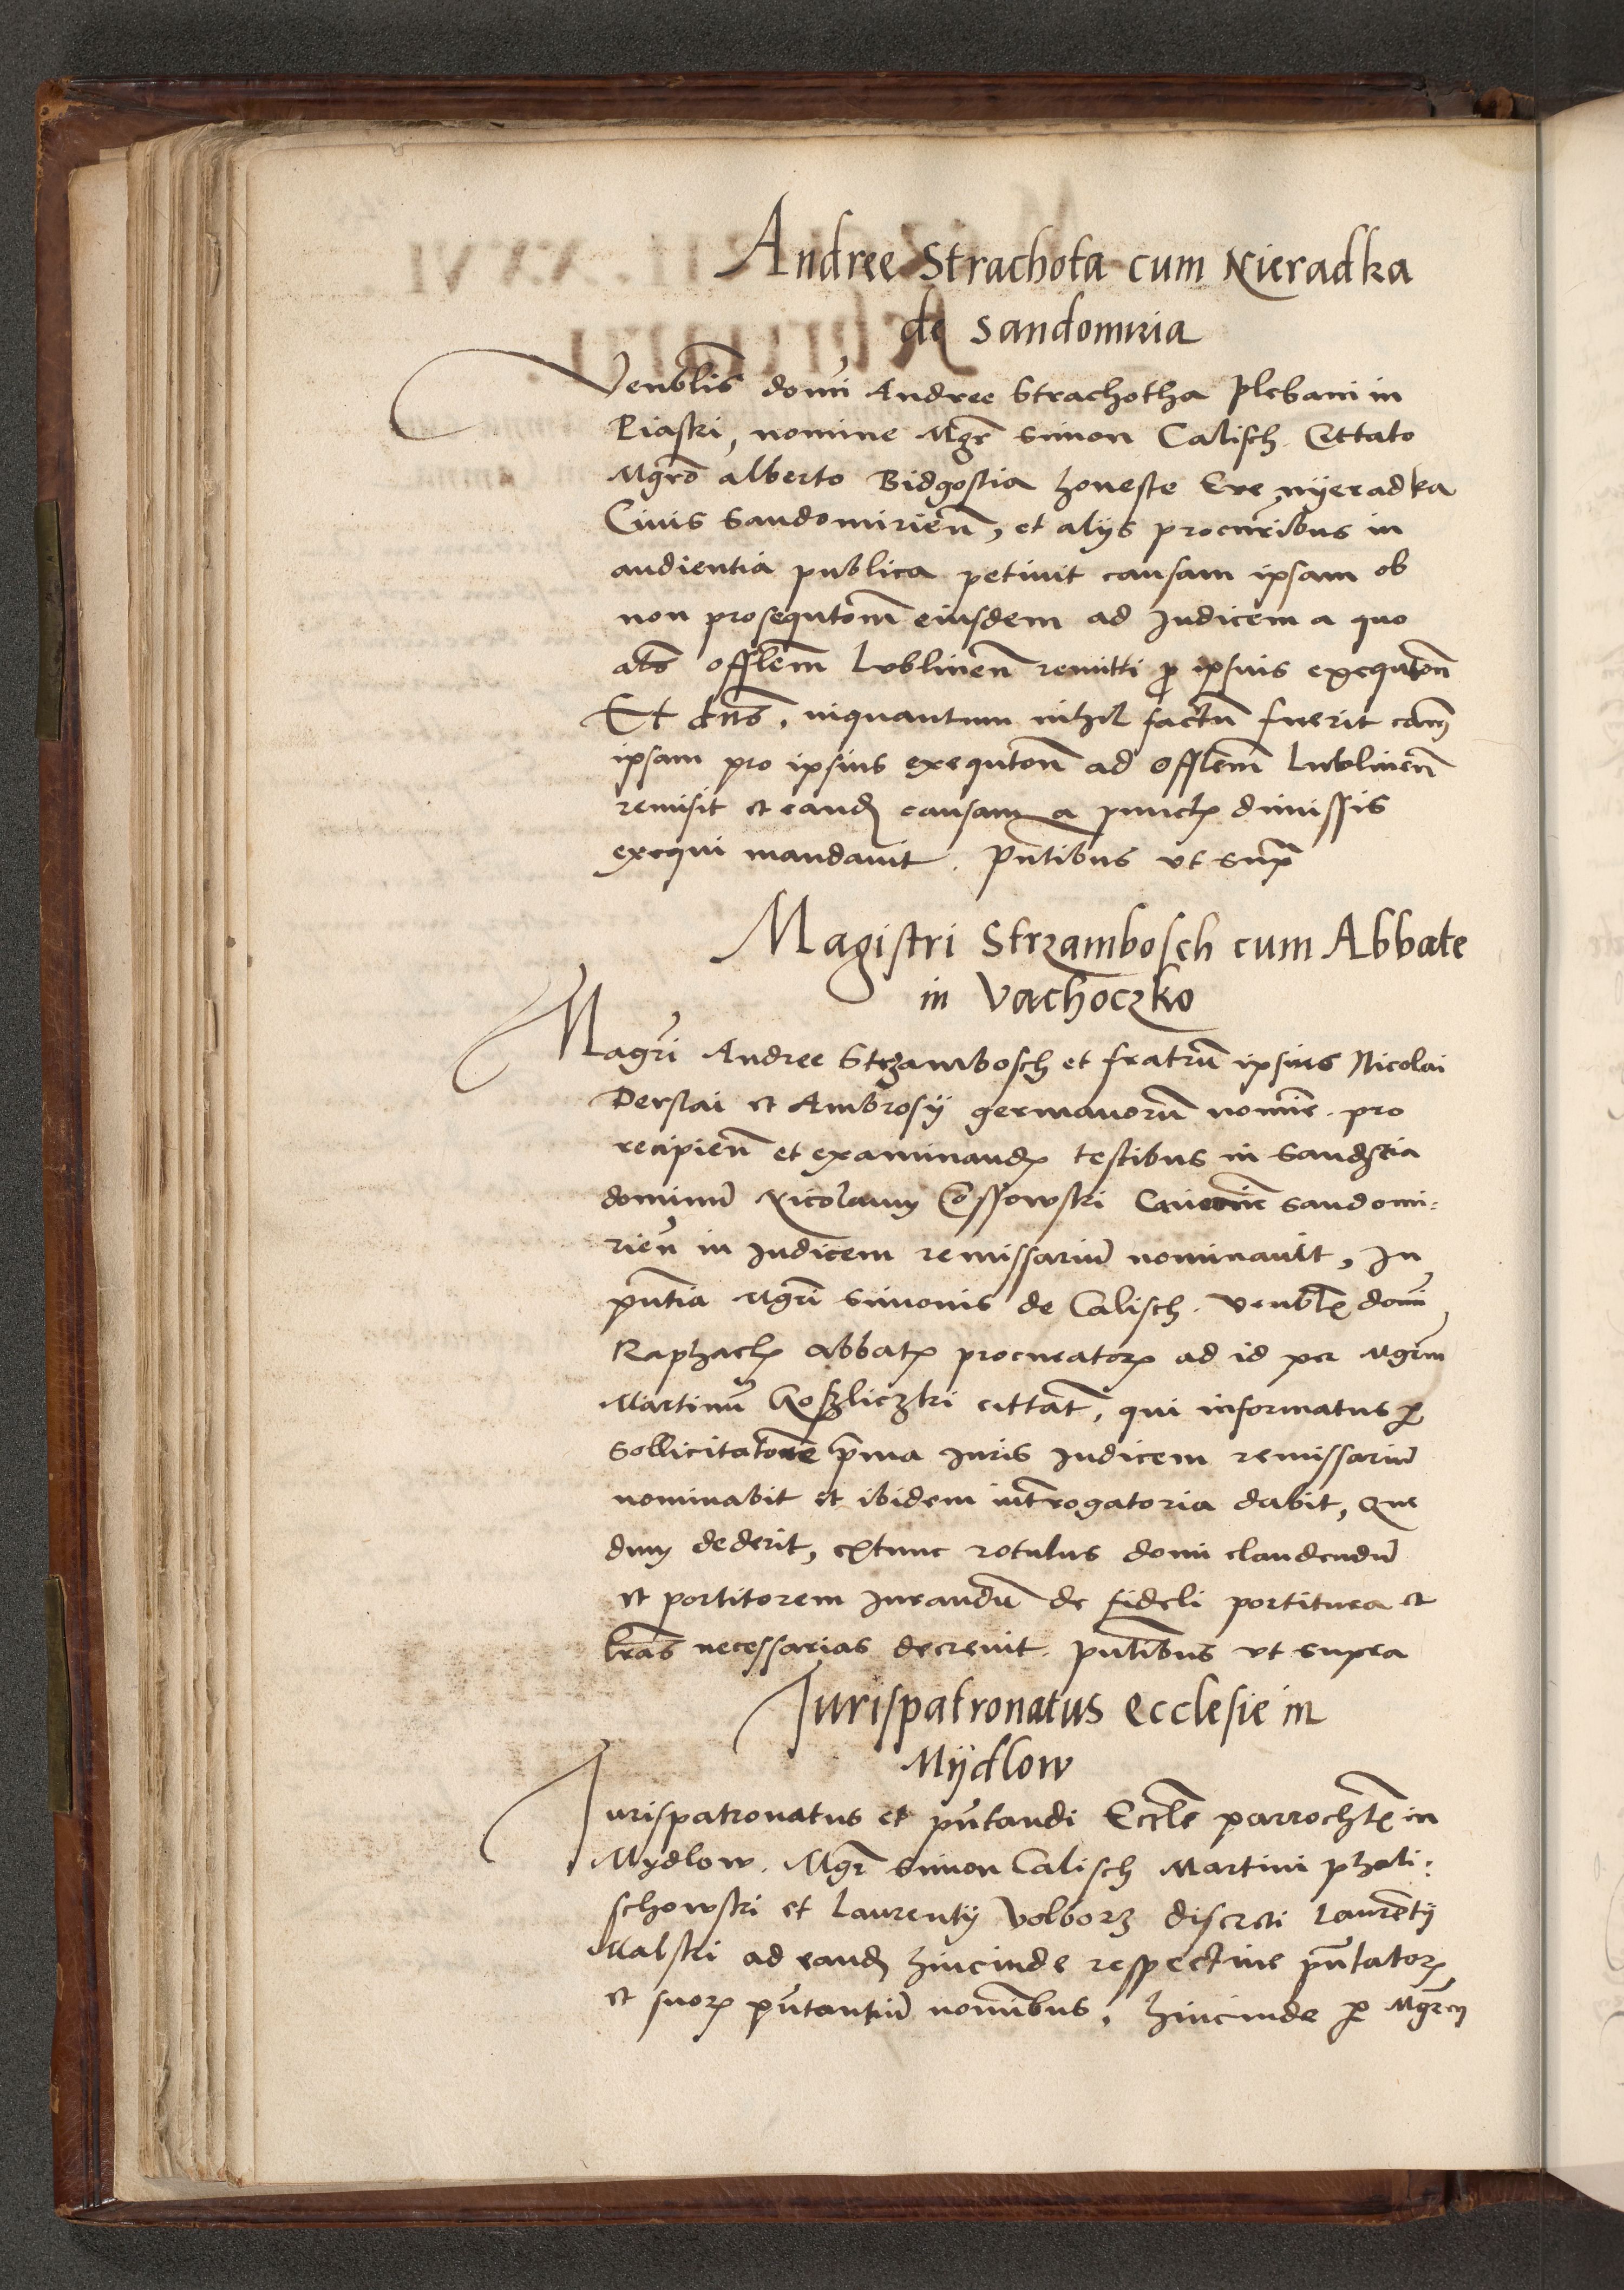 Andree Strachota cum Nieradka
de Sandomiria
Venblis domi Andree Strachotha Plebani in
Piaski, nomine Mgr Simon Calisch. Cittato
Mgro alberto Bidgostia honeste Eve nyeradka
Civis Sandomirien, et alijs procuribus in
audientia publica petivit causam ipsam ob
non prosequtonem eiusdem ad Judicem a quo
als offlem Lublinen remitti p ipsius exequton
Et dns, inquantum nihil factu fuerit cam
ipsam pro ipsius exequton ad offlem Lublinen
remisit et eand causam a punct dimissis
exequi mandavit. Pntibus ut supra
Magistri Strzambosch cum Abbate
in Vachoczko
Magri Andree Strzambosch et fratru ipsius Nicolai
Derslai et Ambrosij germanoru nomine pro
recipien et examinand testibus in Sand
dominu Nicolaum Cossowski Sandomi:
rien in Judicem remissariu nominavit, In
pntia Mgri Simonis de Calisch. venbl domi
Raphael abbat procurator ad id per Mgrm
Martinu cittat, qui informatus p
Sollicitatore pma Juris Judicem remissariu
nominabit et ibidem introgatoria dabit, Que
dum dederit, extunc rotulus domi claudendu
et portitorem Jurandu de fideli portitura et
lras necessarias decrevit. pntibus ut supra
Jurispatronatus Ecclesie in
Mijdlow
Jurispatronatus et pntandi Eccle parrochl in
Mydlow. Mgr Simon Calisch Martini phali:
schowski et Laurentij Volborz discreti Laurentij
Malski ad eand hincinde respective pntator
et suor pntantiu nomibus, hincinde p Mgrm